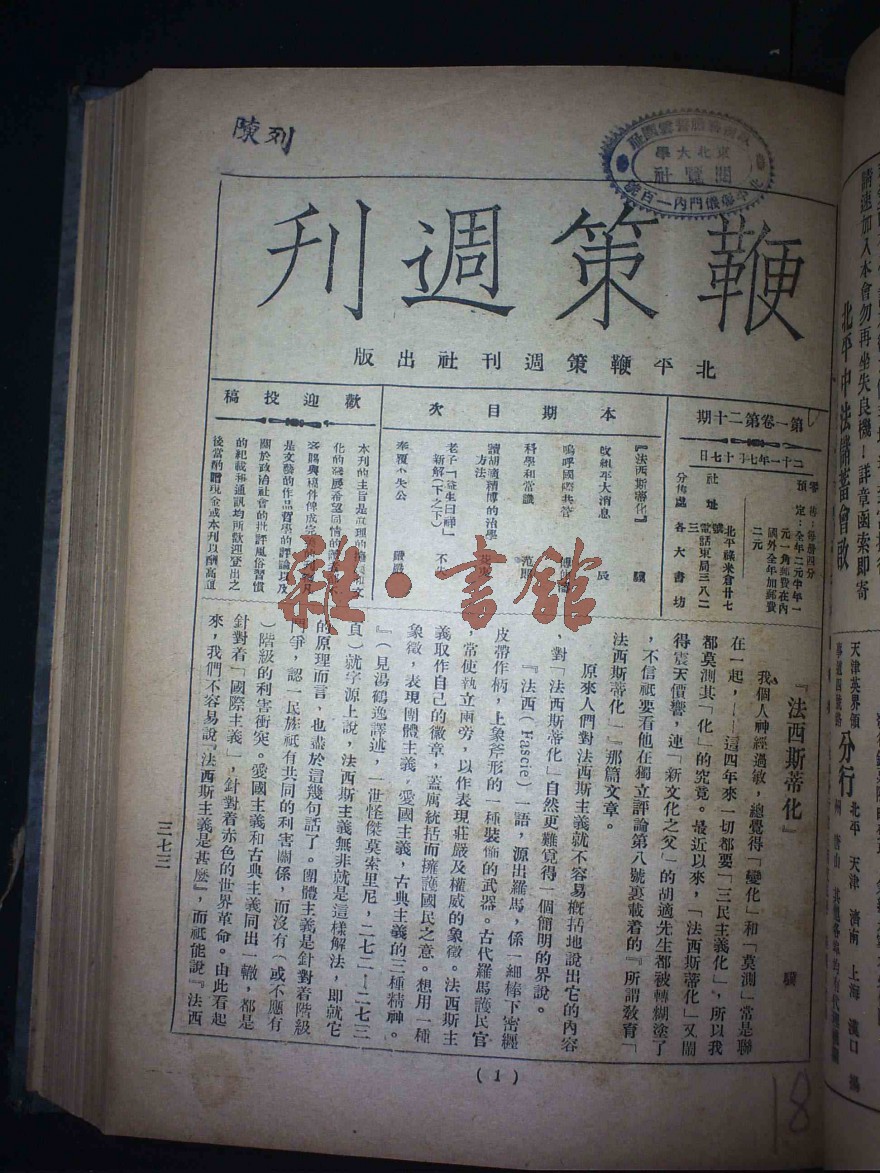 陳列
東北大學
閱覽社
鞭策週刊
北平鞭策週刊社出版
第一卷第二十期
二十一年七月十七日
零售：每冊四分
預定：全年二元半年一
元一角郵費在內
國外全年加郵費
二元
社址
北平祿米倉廿七號
電話東局三八二三
分售處 各大書坊
本期目次
『法西斯蒂化』 驥
改組平大消息 辰
嗚呼國際共管
科學和常識
讀胡適稱博的治學
方法
老子「益生曰祥」
新解(下之下)
奉覆小失公
歡迎投稿
本刊的主旨是真理的
化的發展希望同情的
是文藝的作品哲學的評論以及
關於政治社會的批評風俗習慣
的紀載和通訊均所歡迎登出之
後當酌贈現金或本刊以酬高誼
『法西斯蒂化』
驥
我個人神經過敏，總覺得「變化」和「莫測」常是聯
在一起，——這四年來一切都要「三民主義化」，所以我
都莫測其「化」的究竟。最近以來，「法西斯蒂化」又鬧
得震天價響，連「新文化之父」的胡適先生都被轉糊塗了
，不信祇要看他在獨立評論第八號裏載着的『所謂敎育「
法西斯蒂化」』那篇文章。
原來人們對法西斯主義就不容易概括地說出它的內容
，對「法西斯蒂化」自然更難覓得一個簡明的界說。
『法西（Fascie）一語，源出羅馬，係一細棒下密纏
皮帶作柄，上象斧形的一種裝飾的武器。古代羅馬護民官
，常使執立兩旁，以作表現莊嚴及權威的象徵。法西斯主
義取作自己的徽章，蓋寓統括而擁護國民之意。想用一種
象徵，表現團體主義，愛國主義，古典主義的三種精神。
』（見湯鶴逸譯述，一世怪傑莫索里尼，二七二—二七三
頁）就字源上說，法西斯主義無非就是這樣解法，即就它
的原理而言，也盡於這幾句話了。團體主義是針對着階級
鬥爭，認一民族祇有共同的利害關係，而沒有（或不應有
）階級的利害衝突。愛國主義和古典主義同出一轍，都是
針對着「國際主義」，針對着赤色的世界革命。由此看起
來，我們不容易說『法西斯主義是甚麽』，而祇能說『法西
三七三
(1)
18
雜·書館
請速加入本會勿再坐失良機！詳章函索即寄
北平中法儲蓄會啟
天津英界領
事道四號路
分行
北平 天津 濟南 上海 漢口